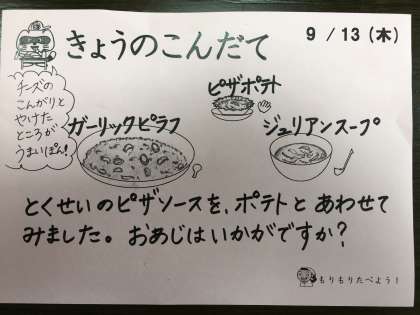 きょうのこんだて
9/13(木)
チーズの
こんがりと
やけた
ところが
うまいぽん!
ピザポテト
ガーリックピラフ
ジュリアンスープ
とくせいのピザソースを、ポテトとあわせて
みました。おあじはいかがですか?
もりもりたべよう!